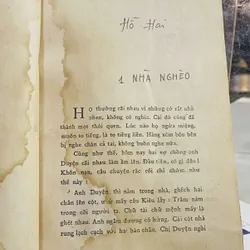 Hồ Hai
1 NHÀ NGHÈO
HỌ thường cãi nhau vì những cớ rất nhỏ
nhen, không có nghĩa. Cái đó cũng đã
thành một thói quen. Lúc nào họ ngứa miệng,
muốn to tiếng, là to tiếng liền. Hàng xóm bên
bị nghe chán cả tai, không buồn nghe nữa.
Cũng như thế, bữm nay hai vợ chồng anh
Duyện cãi nhau làm ầm lên. Đầu tiên, có gì đâu !
Khốn nạn, câu chuyện rắc rối chỉ nhóm như
thế này :
Anh Duyện thì nằm trong nhà, ghếch hai
chân lên cột, ư ử mấy câu Kiều lẩy : Trăm năm
trong cõi người ta. Chữ tài chữ mệnh mấy là
ghét nhau. Anh ngân đương cố hứng. Cái cột nhà
rung lịch cạch với hai bàn chân. Chị Duyện ngồi